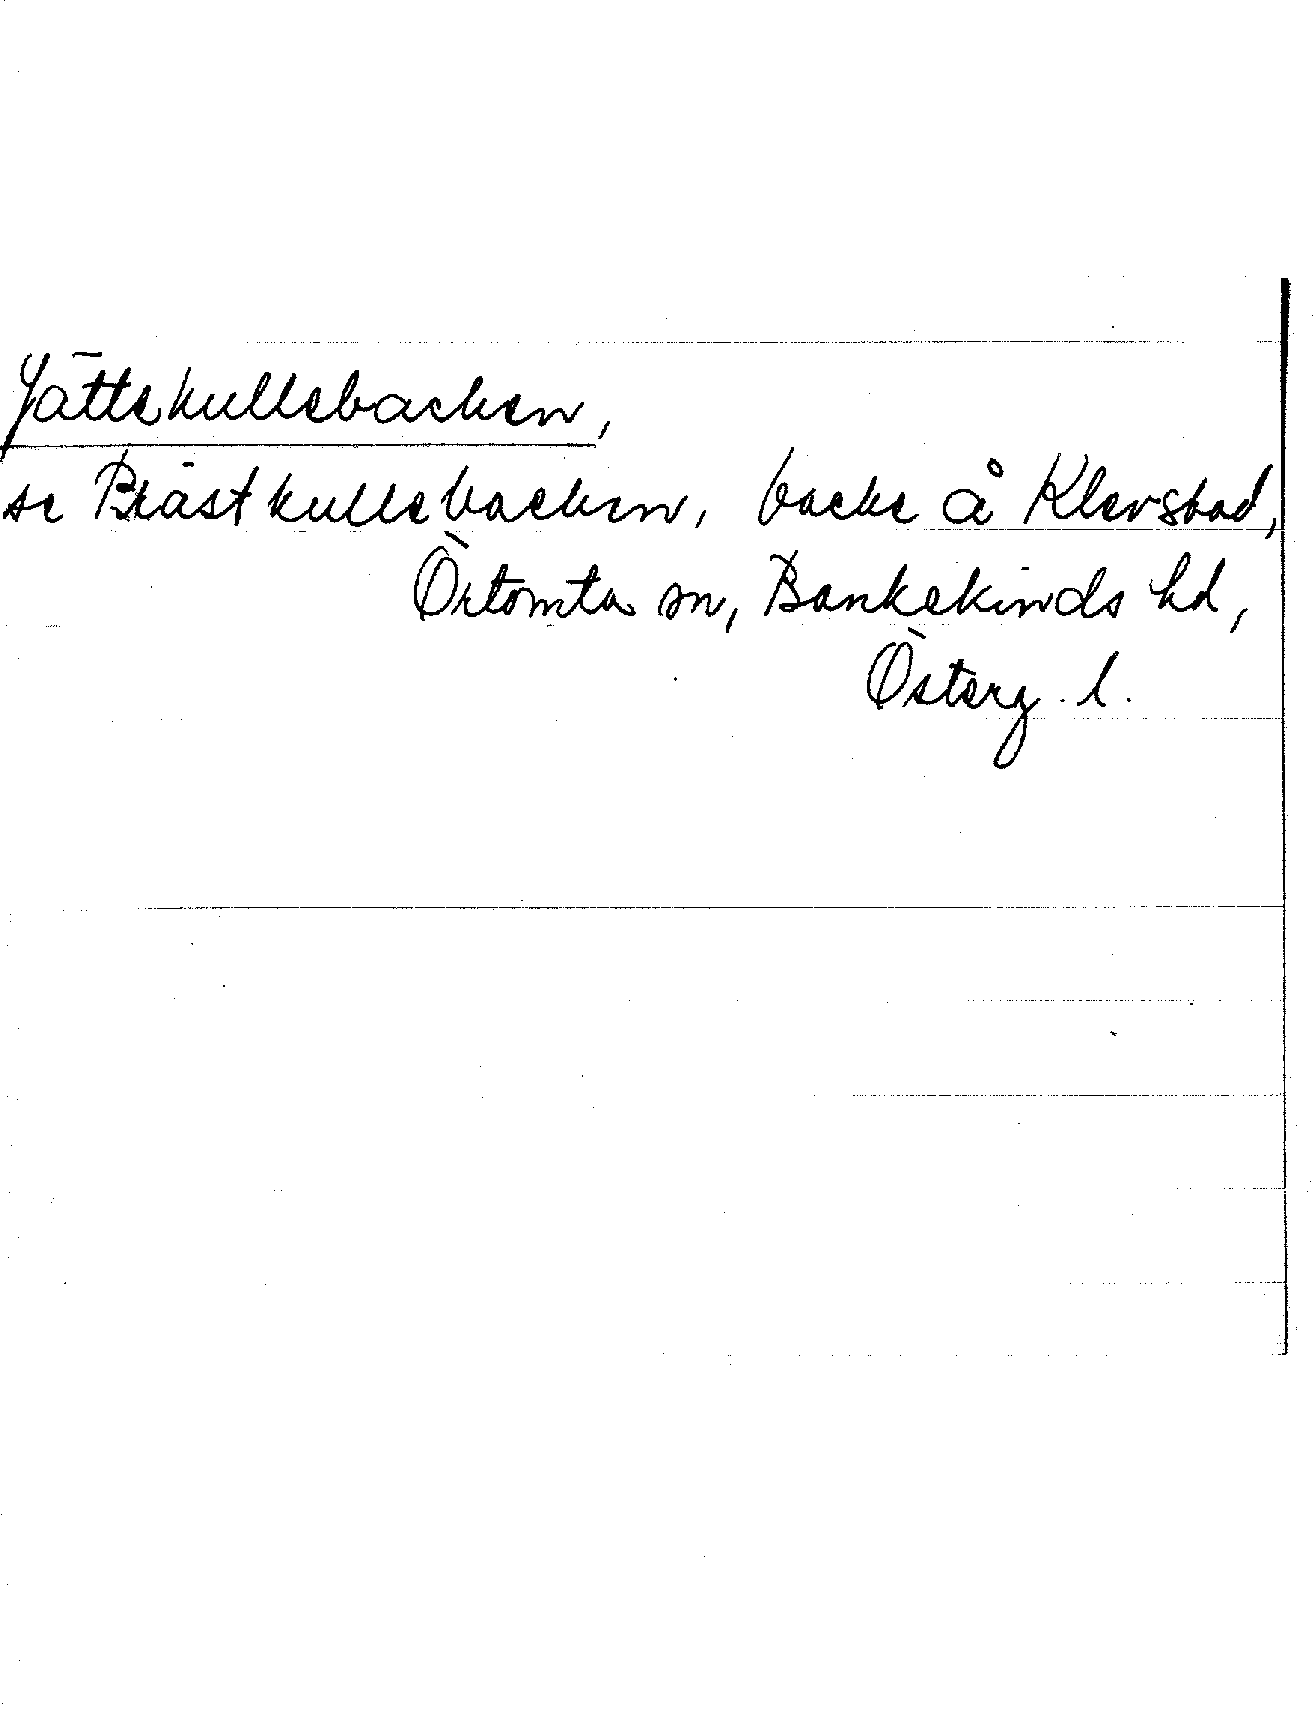 Jättekullebacken,
se Brästkullebacken, backe å Klevstad,
Örtomta sn, Bankekinds hd,
Österg. l.